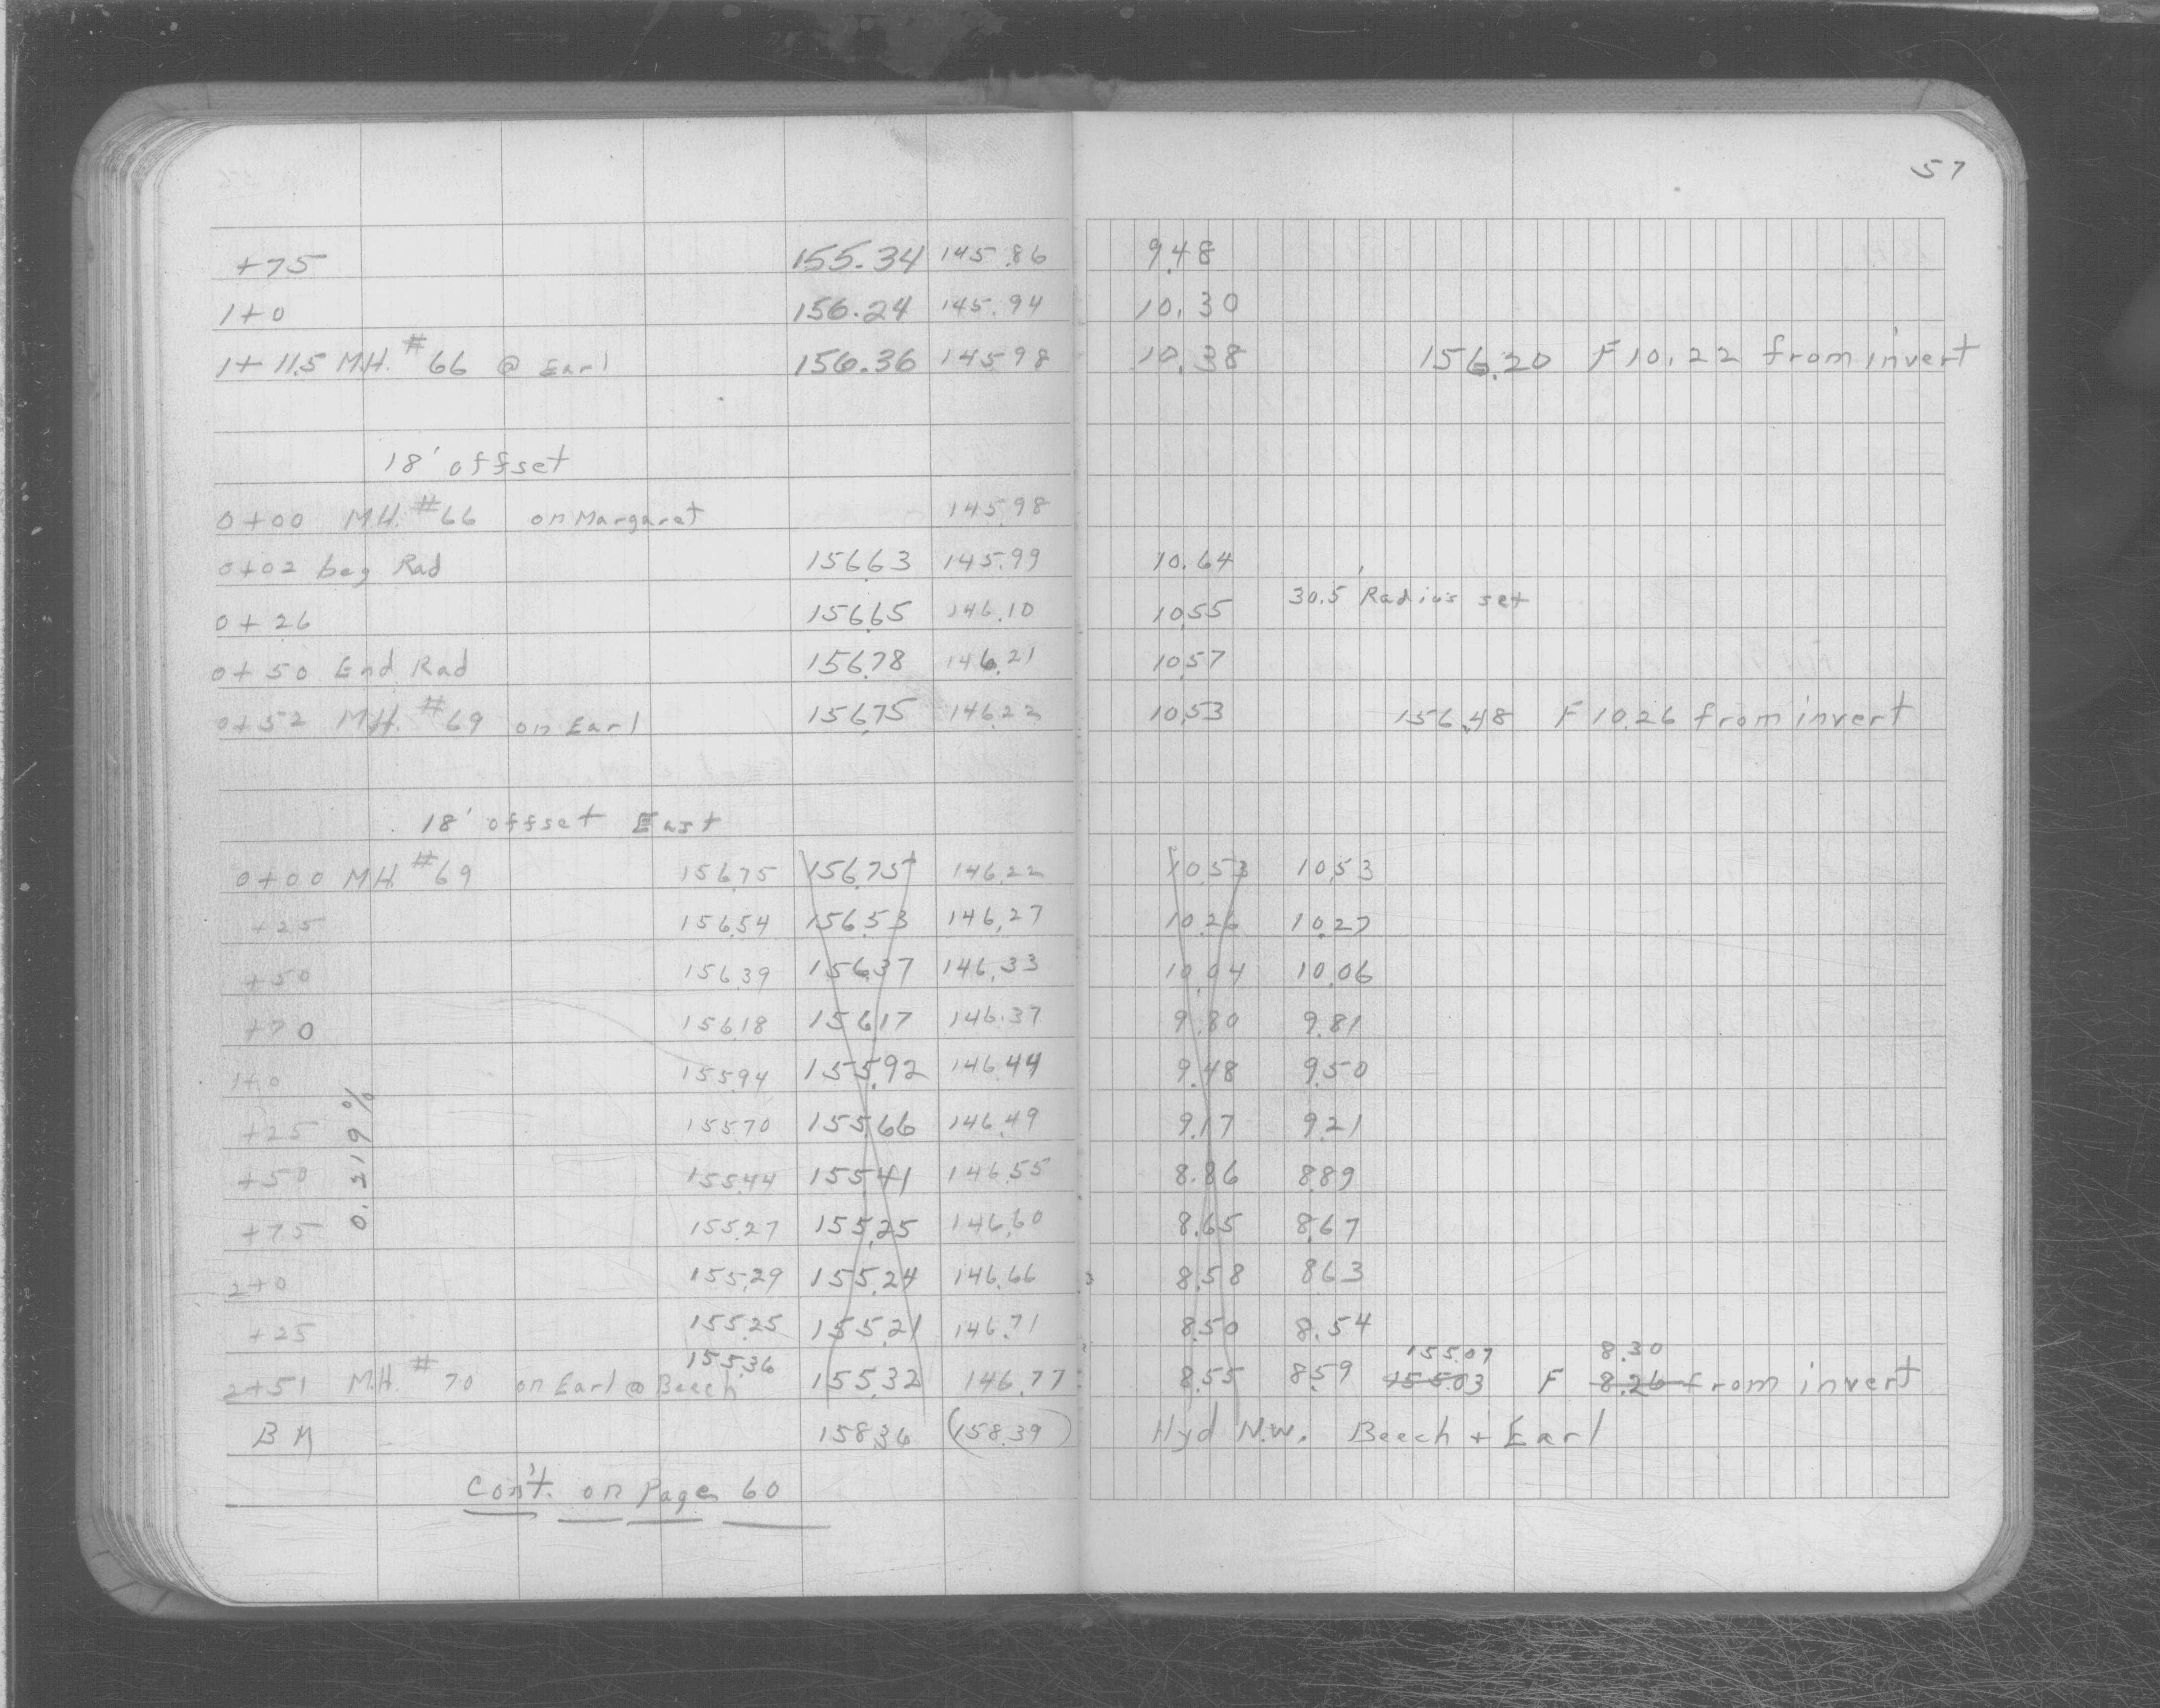 57
+75 155.34 145.86 9.48
1+0 156.24 145.94 10.30
1+11.5 M.H. #66 @ Earl 156.36 145.98 10.38 156.20 F 10.22 from invert
18' offset
0+00 M.H. #66 on Margaret 145.98
0+02 beg Rad 156.63 145.99 10.64
30.5' Radius set
0+26 156.65 146.10 10.55
0+50 End Rad 156.78 146.21 10.57
0+52 M.H. #69 on Earl 156.75 146.22 10.53 156.48 F 10.26 from invert
18' offset East
0+00 M.H. #69 156.75 156.75 146.22 10.53 10.53
+25 156.54 156.53 146.27 10.26 10.27
+50 156.39 156.37 146.33 10.04 10.06
+70 156.18 156.17 146.37 9.80 9.81
1+0 155.94 155.92 146.44 9.48 9.50
0.219%
+25 155.70 155.66 146.49 9.17 9.21
+50 155.44 155.41 146.55 8.86 8.89
+75 155.27 155.25 146.60 8.65 8.67
2+0 155.29 155.24 146.66 8.58 8.63
+25 155.25 155.21 146.71 8.50 8.54
155.36 155.07 8.30
2+51 M.H. #70 on Earl @ Beech 155.32 146.77 8.55 8.59 155.03 F 8.26 from invert
BM 158.36 (158.39) Hyd N.W. Beech + Earl
Con't. on Page 60